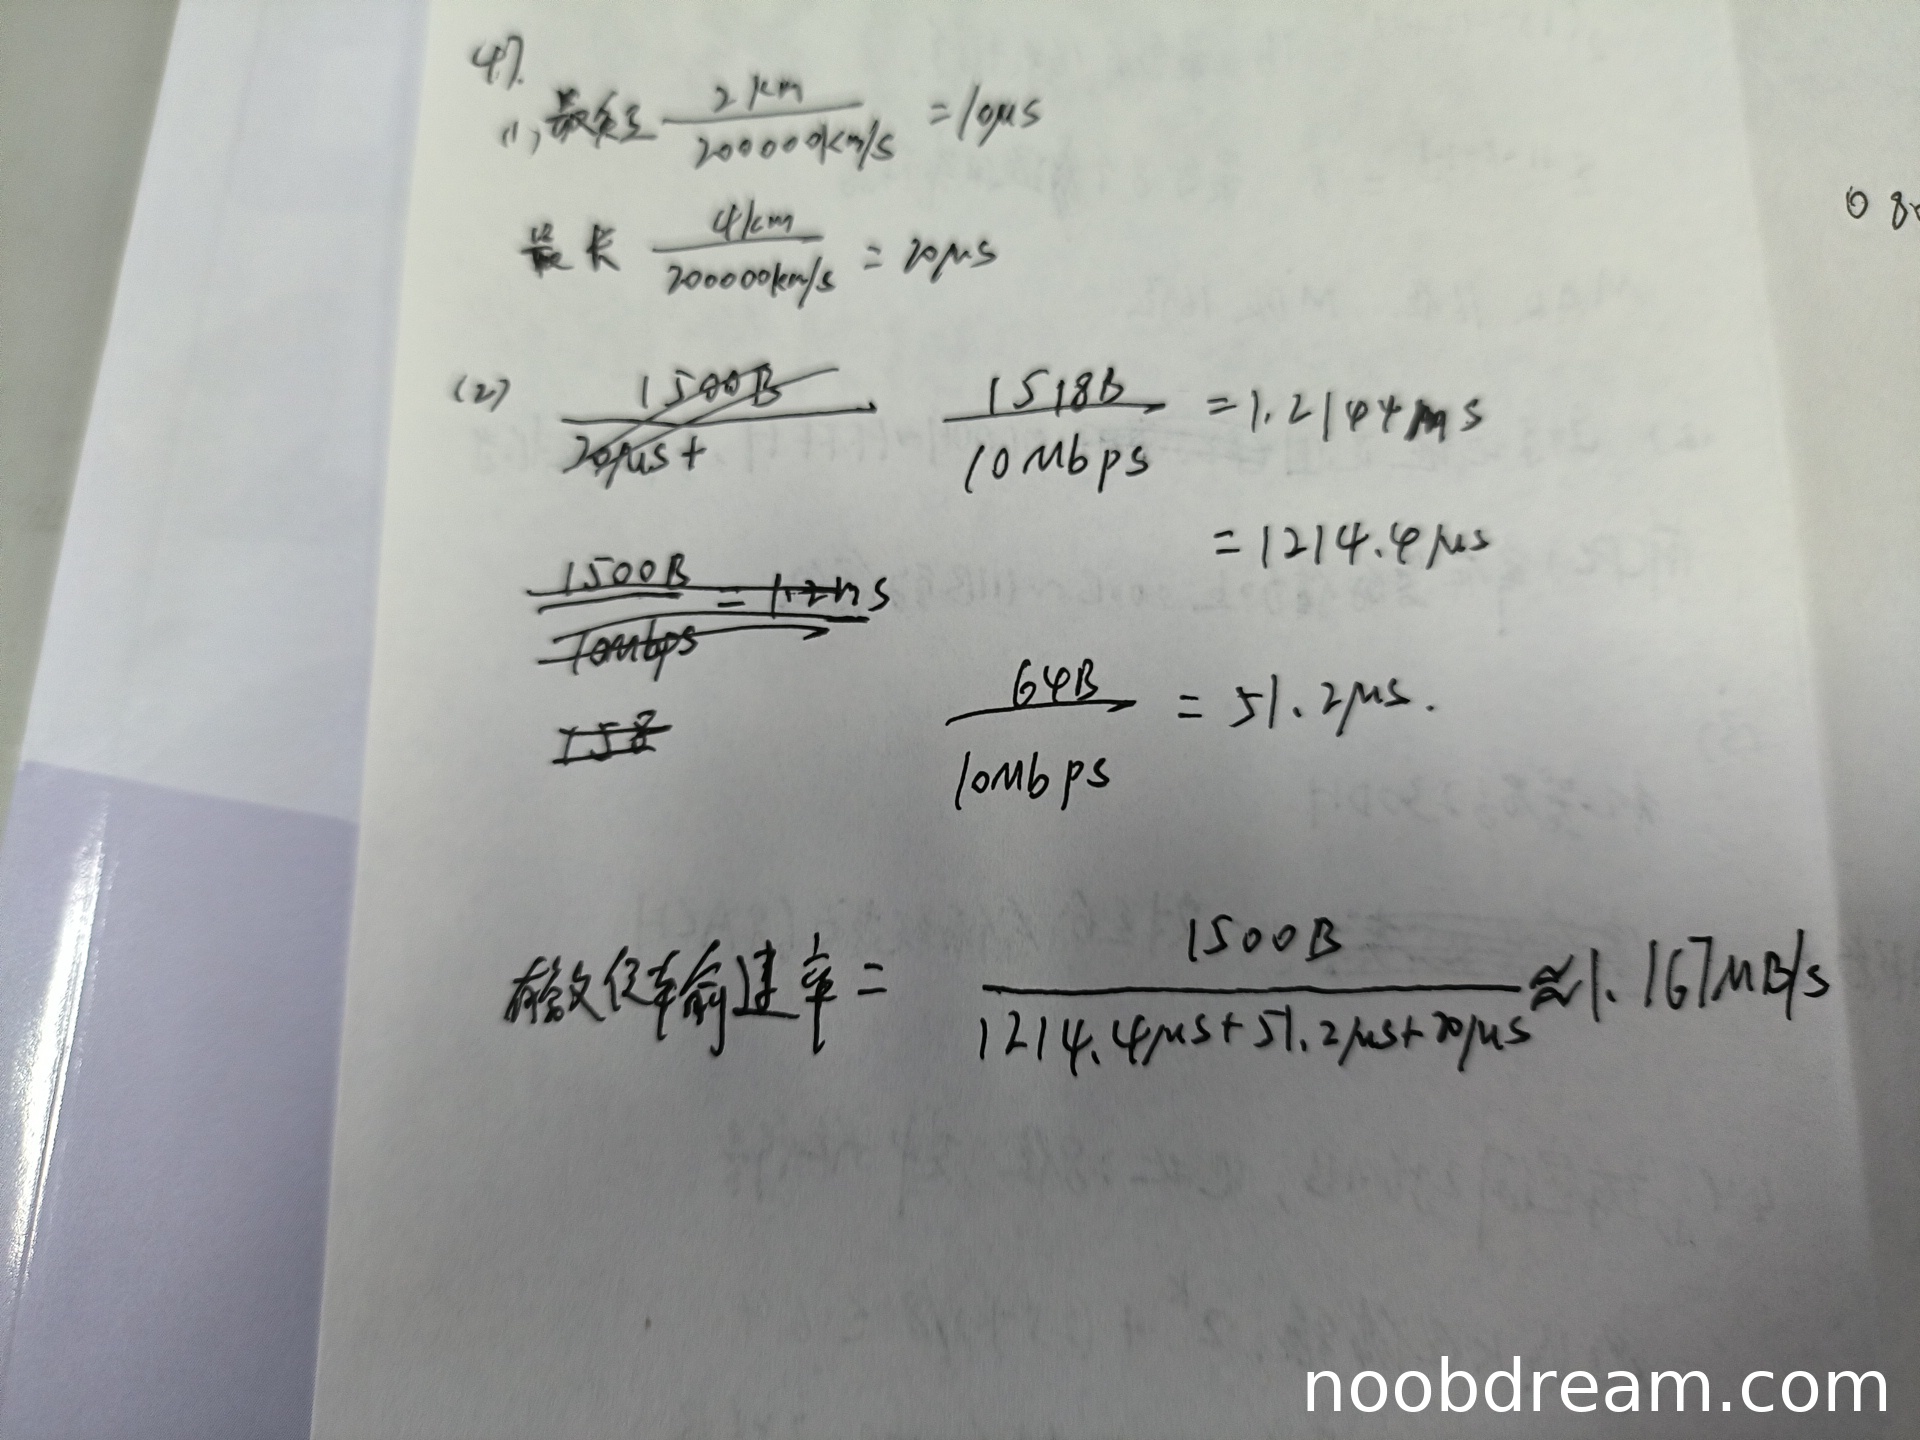 47.
(1) 最短 2km / 200000km/s = 10μs
最长 4km / 200000km/s = 20μs
(2) 1500B / 20μs+
1518B / 10Mbps = 1.2144ms
= 1214.4μs
1500B / 10Mbps = 1.2ms
158
64B / 10Mbps = 51.2μs.
有效传输速率 = 1500B / 1214.4μs+51.2μs+20μs ≈ 1.167MB/s
noobdream.com